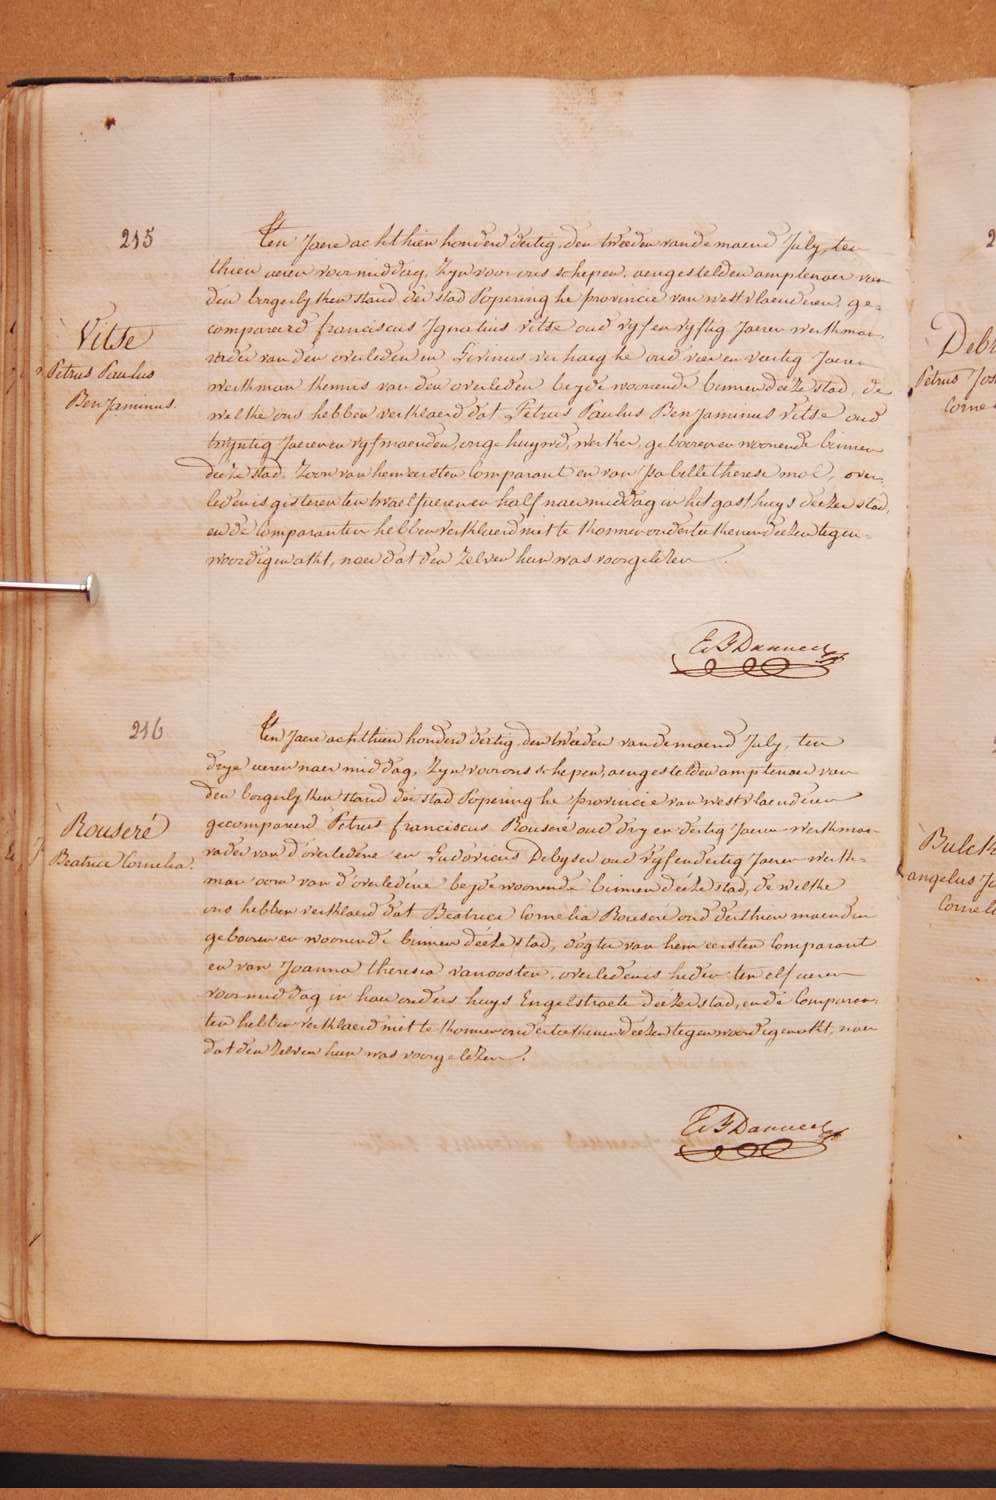 215
Vitse
Petrus Paulus
Benjaminus.
Ten Jaere achthien honderd dertig, den tweeden van de maend July, ten
thien ueren voormiddag, zyn voor ons schepen, aengestelden amptenaer van
den borgerlyken stand der stad Poperinghe provincie van westvlaenderen, ge-
compareerd franciscus Ignatius vitse oud vyf en vyftig Jaeren werkman
vader van den overleden en Livinus verhaeghe oud vier en veertig Jaeren
werkman kennis van den overleden beyde woonende binnen deeze stad, de
welke ons hebben verklaerd dat Petrus Paulus Benjaminus Vitse oud
twyntig Jaeren en vyf maenden, ongehuywd, werker, geboren en woonende binnen
deeze stad. Zoon van hem eersten Comparant en van Isabelle therese mol, over-
leden is gisteren ten twaelf ueren en half naermiddag in het gasthuys deezer stad,
en de Comparanten hebben verklaerd niet te konnen onderteekenen deezen tegen-
woordigen acht, naer dat den zelven hun was voorgelezen.
E F Dauwe
216
Rouseré
Beatrice Cornelia.
Ten Jaere achthien honderd dertig, den tweeden van de maend July, ten
drye ueren naermiddag, zyn voor ons schepen, aengestelden amptenaer van
den borgerlyken stand der stad Poperinghe provincie van westvlaenderen
gecompareerd Petrus franciscus Rouseré oud dry en dertig Jaeren werkman
vader van d'overledene en Ludovicus Debyser oud vyf en dertig Jaeren werk-
man oom van d'overledene beyde woonende binnen deeze stad, de welke
ons hebben verklaerd dat Beatrice Cornelia Rouseré oud derthien maenden
geboren en woonende binnen deeze stad, dogter van hem eersten Comparant
en van Joanna theresia vanoosten, overleden is heden ten elf ueren
voormiddag in haer ouders huys Engelstraete deezer stad, en de Comparan-
ten hebben verklaerd niet te konnen onderteekenen deezen tegenwoordigen acht, naer
dat den zelven hun was voorgelezen.
E F Dauwe
Petrus Jos
Corne
angelus Jo
Corneli